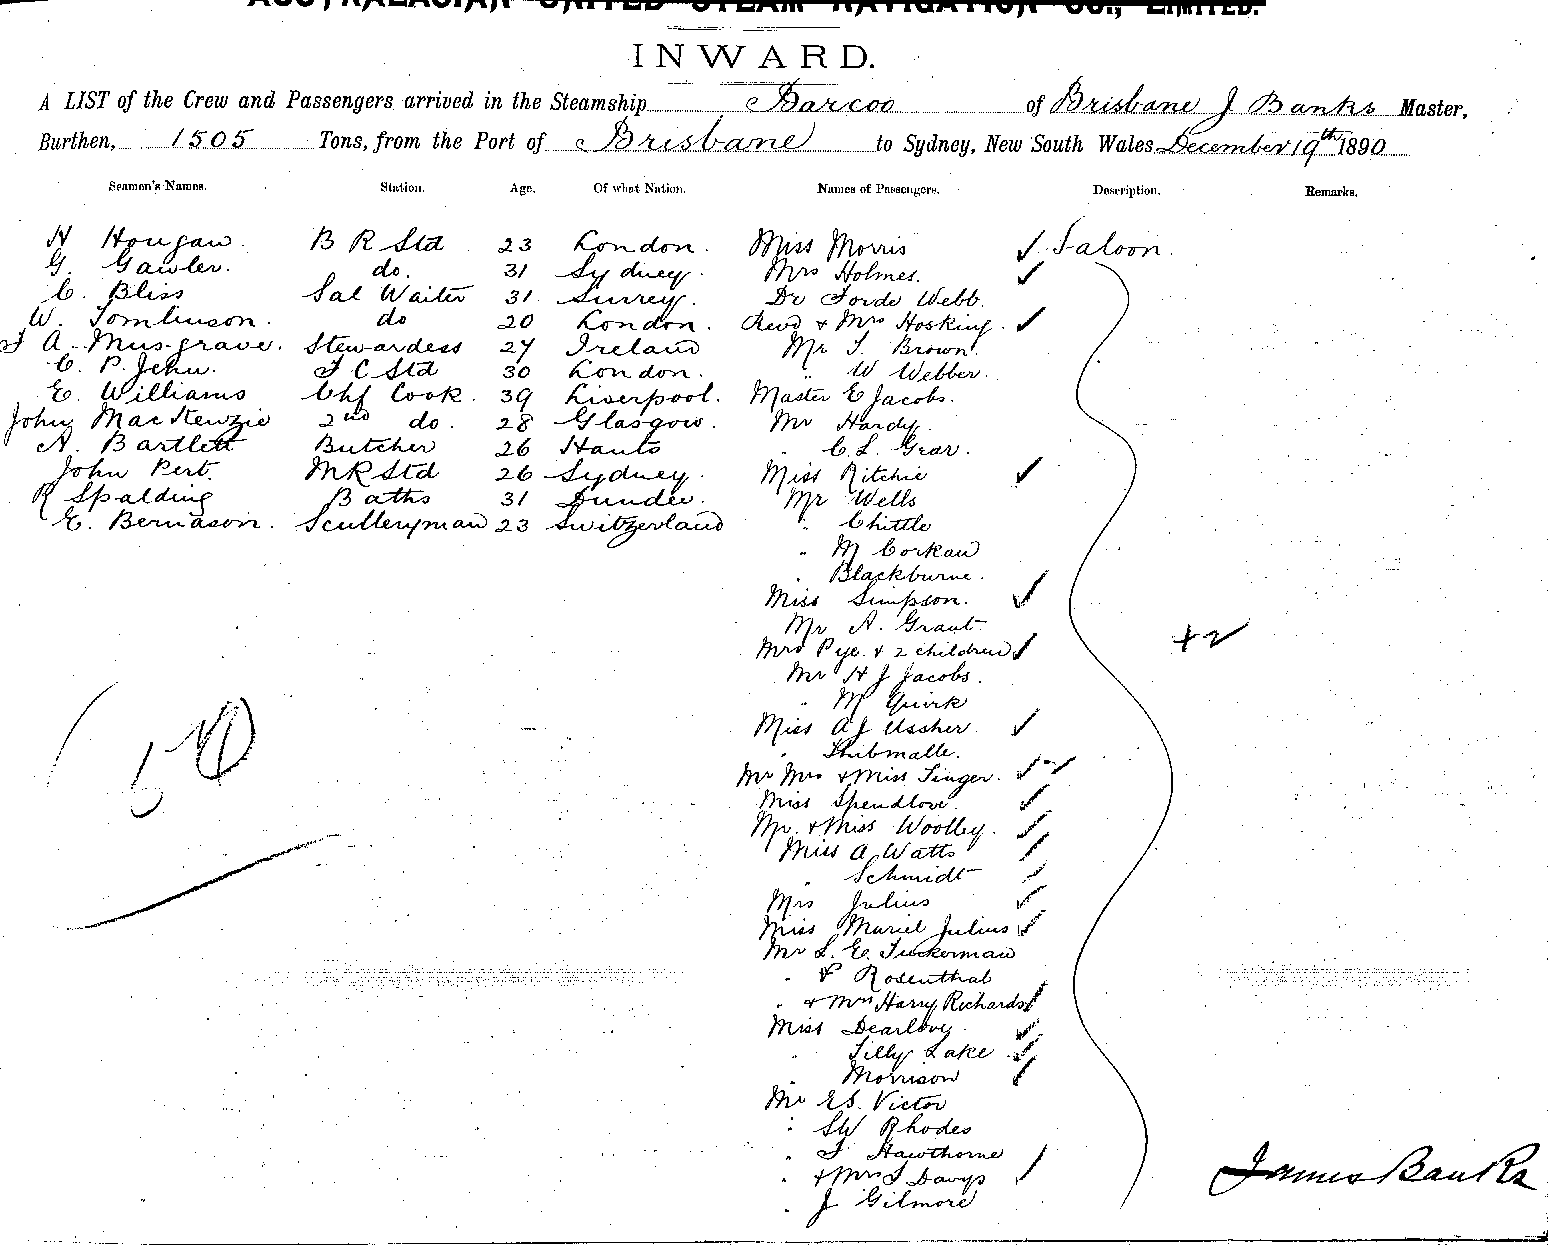 AUSTRALASIAN UNITED STEAM NAVIGATION CO., LIMITED.
INWARD.
A LIST of the Crew and Passengers arrived in the Steamship Barcoo of Brisbane J Banks Master,
Burthen, 1505 Tons, from the Port of Brisbane to Sydney, New South Wales December 19th 1890
Seamen's Names. Station. Age. Of what Nation. Names of Passengers. Description. Remarks.
H Hougaw. B R Std 23 London. Miss Morris ✓ Saloon.
G. Gawler. do. 31 Sydney. Mrs Holmes. ✓
C. Bliss Sal Waiter 31 Surrey. Dr Forde Webb.
W. Tomlinson. do 20 London. Revd & Mrs Hosking. ✓
A. Musgrave. Stewardess 27 Ireland Mr T. Brown.
C. P. Jehu. F C Std 30 London. " W Webber.
E. Williams Chf Cook. 39 Liverpool. Master E Jacobs.
John MacKenzie 2nd do. 28 Glasgow. Mr Hardy.
A. Bartlett Butcher 26 Hants " C. L. Grar.
John Pert. M R Std 26 Sydney. Miss Ritchie ✓
R Spalding Baths 31 Dundee. Mr Wells
E. Bernason. Sculleryman 23 Switzerland " Chittle
" M Corkan
" Blackburne.
Miss Simpson. ✓
Mr A. Grant.
Mrs Pye. & 2 children ✓ +2
Mr H J Jacobs.
" M Quirk
Miss A J Usscher ✓
" Thibmalle.
Mr Mrs & Miss Singer. ✓-✓
Miss Spendlove. ✓
Mr. & Miss Woolley. ✓
Miss A Watts ✓
" Schmidt ✓
Mrs Julius ✓
Miss Muriel Julius ✓
Mr L. E. Tuckerman
" P Rosenthal
" & Mrs Harry Richards ✓
Miss Dearlovy. ✓
" Tilly Lake ✓
" Morrison ✓
Mr E S. Victor
" S W Rhodes
" F Hawthorne
" & Mrs S Davys ✓
" J Gilmore
James Banks